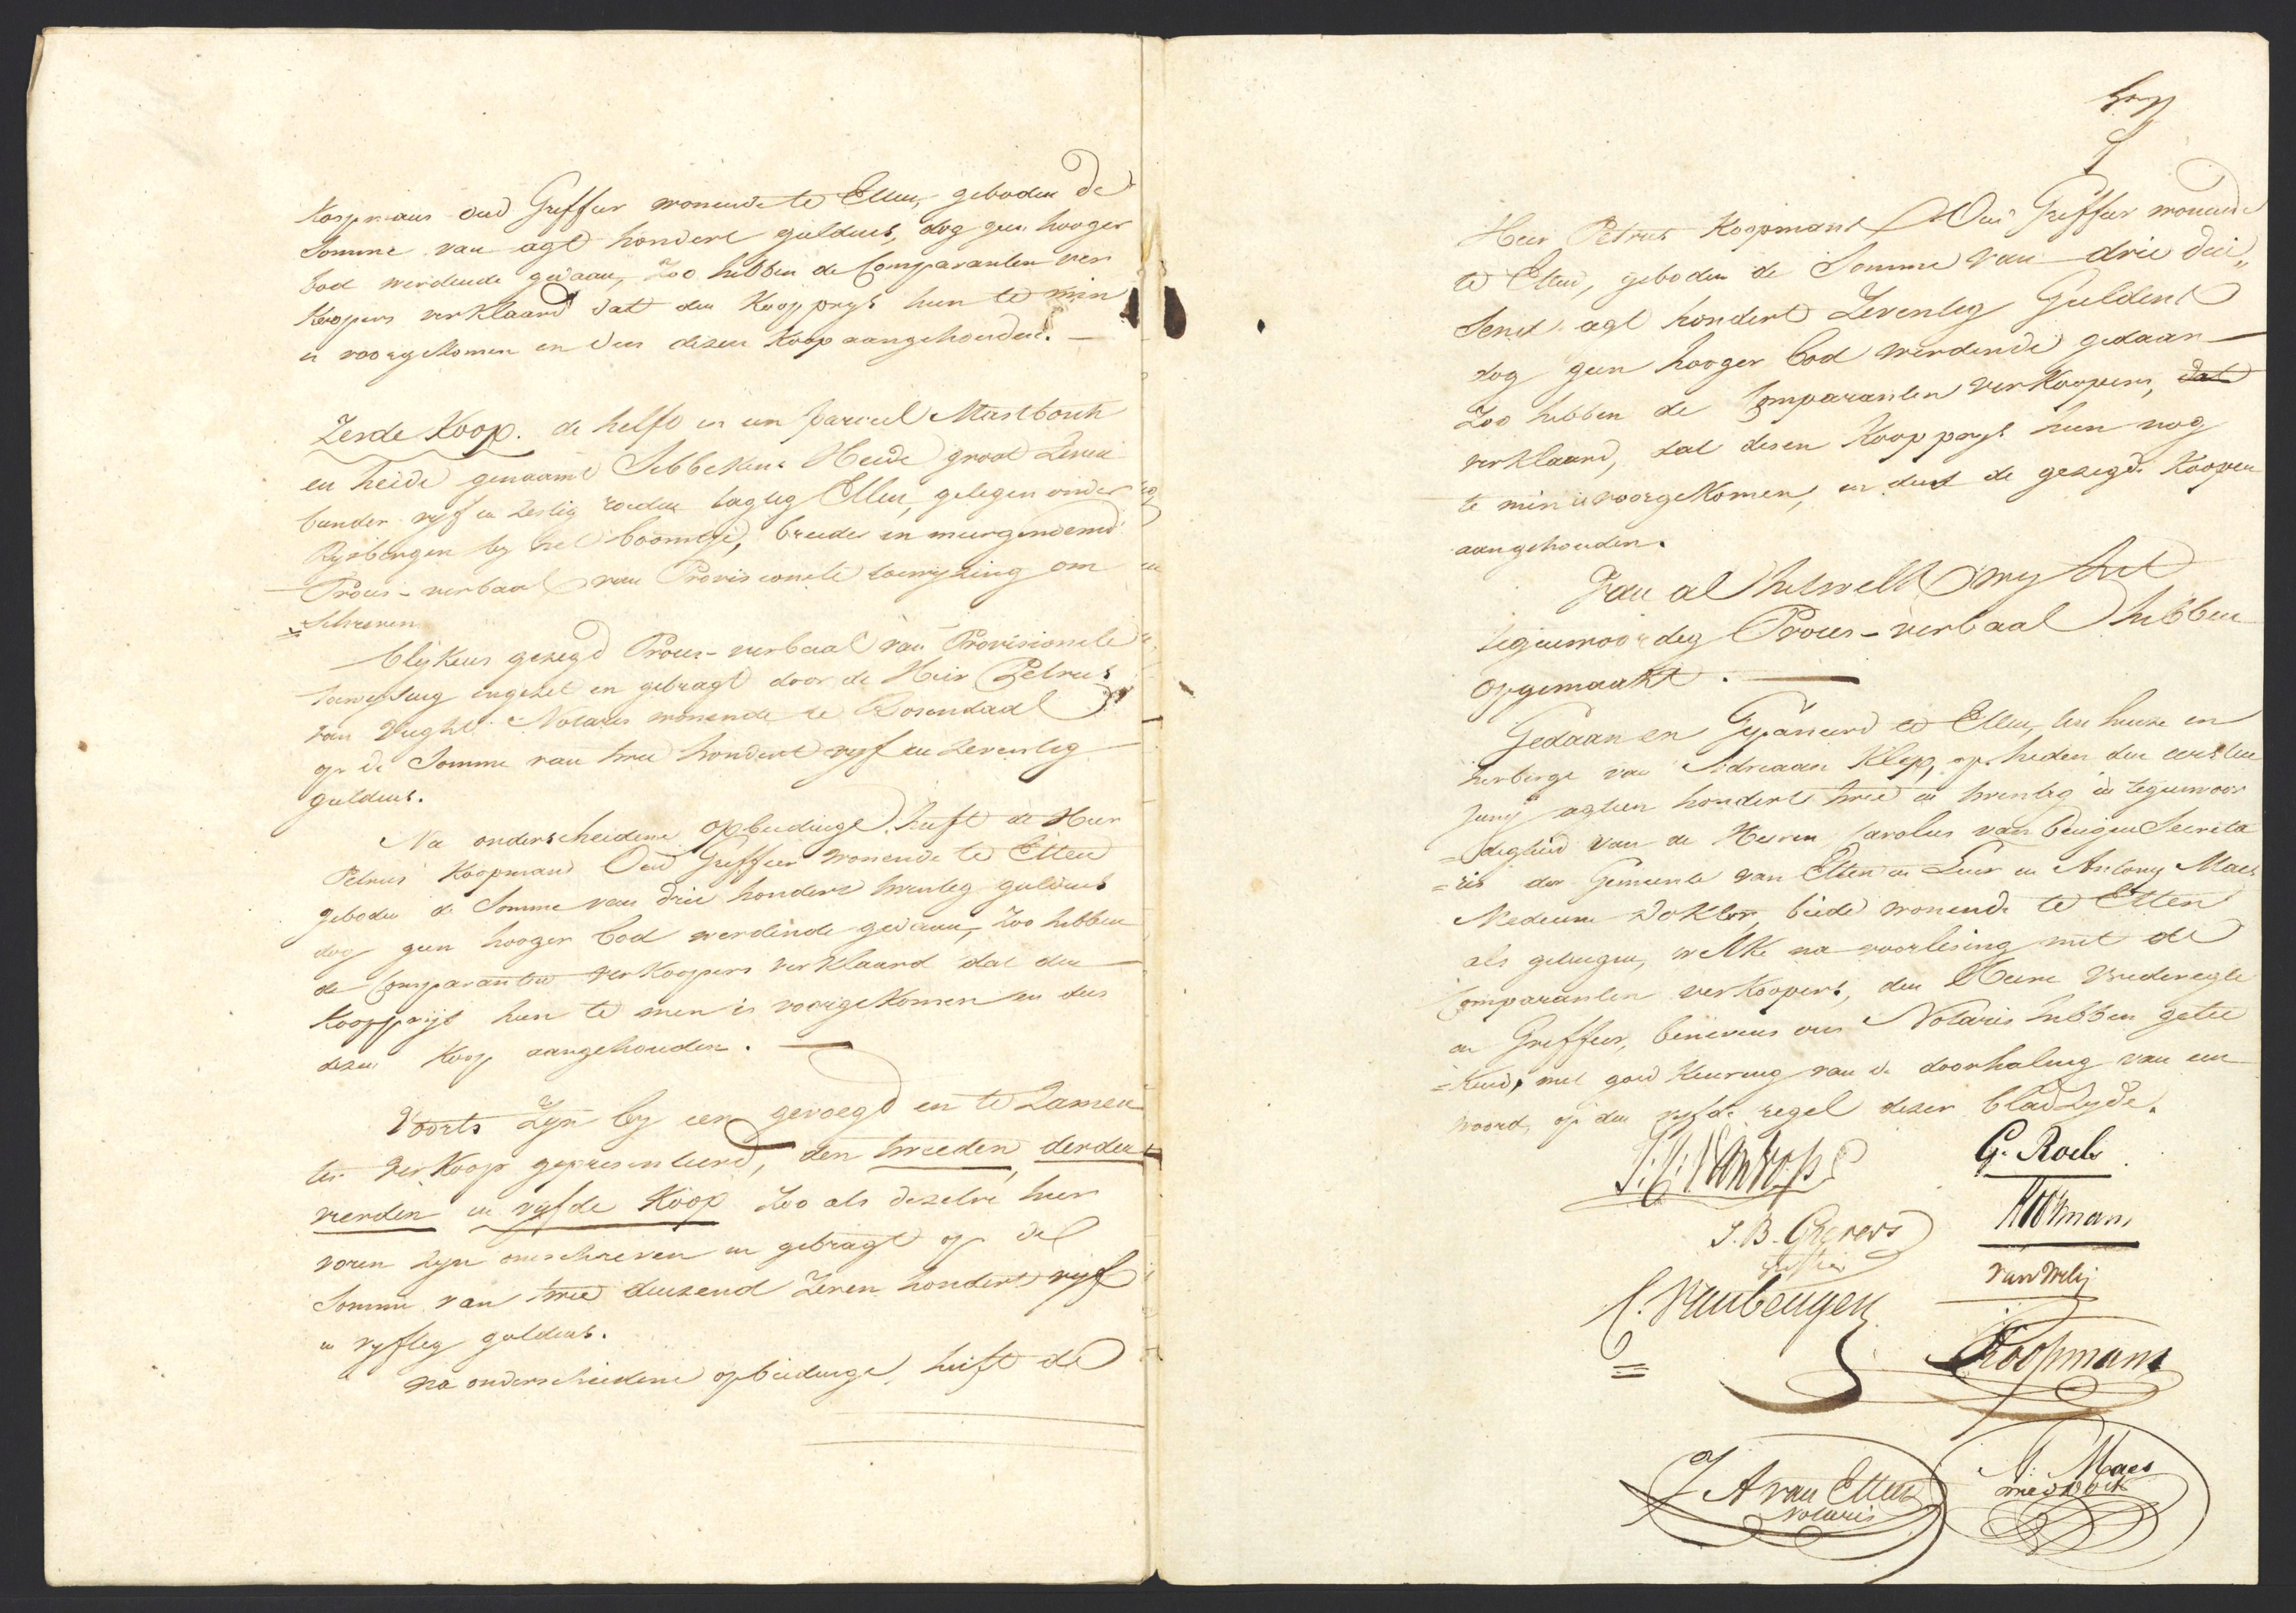 Koopmans oud Griffier wonende te Etten, geboden de
Somme van agt hondert guldens, dog geen hooger
bod werdende gedaan, zoo hebben de Comparanten ver
Koopers verklaard dat den Koopprys hun te min
is voorgekomen en dus dezen Koop aangehouden. —
Zesde Koop. de helft in een parceel Mastbosch
en heide genaamt Sebbekens Heide groot Zeven
bunder vyf en zestig roeden tagtig Ellen, gelegen onder
Rysbergen by het boomtje, breeder in meergenoemd
Proces-verbaal van Provisionele toewyzing om
schreven
blykens gezegd Proces-verbaal van Provisionele
toewyzing ingezet en gebragt door de Heer Petrus
van Vught Notaris wonende te Rosendaal
op de Somme van twee hondert vyf en zeventig
guldens.
Na onderscheidene opbiedinge heeft de Heer
Petrus Koopmans Oud Griffier wonende te Etten
geboden de Somme van drie hondert twintig guldens
dog geen hooger bod werdende gedaan, zoo hebben
de Comparanten verkoopers verklaard dat den
Koopprijs hun te min is voorgekomen en dus
dezen Koop aangehouden. —
Voorts Zyn by een gevoegd en te Zamen
ter verkoop gepresenteerd, den tweeden, derden
vierden en vyfde Koop Zoo als dezelve hier
voren zyn omschreven en gebragt op de
Somme van twee duizend Zeven hondert vyf
en vyftig guldens.
na onderscheidene opbiedinge heeft de
Heer Petrus Koopmans Oud Griffier wonende
te Etten, geboden de Somme van drie dui„
send agt hondert Zeventig Guldens
dog geen hooger bod werdende gedaan —
Zoo hebben de Comparanten verkoopers, dat
verklaard, dat desen Koopprys hun nog
te min is voorgekomen, en dus de gezegde Koopen
aangehouden.
Van al hetwelk wy het
tegenwoordig Proces-verbaal hebben
opgemaakt. —
Gedaan en Gepasseerd te Etten, ten huize en
herberge van Adriaan Klep, op heden den eersten
Juny agtien hondert twee en twintig in tegenwoor
=digheid van de Heeren Carolus van Beugen Secreta
=ris der Gemeente van Etten en Leur en Antony Maes
Medicine Doktor, beide wonende te Etten
als getuigen, welke na voorlesing met de
Comparanten verkoopers, den Heere Vrederegter
en Griffier, benevens ons Notaris hebben getee
=kend, met goed keuring van de doorhaling van een
woord, op den vyfde regel dezer bladzyde.
G. Roels
J. B. Gregoors
griffier
van Wely
C. Van Beugen
Koopmans
J A van Etten
notaris
A: Maes
med doct